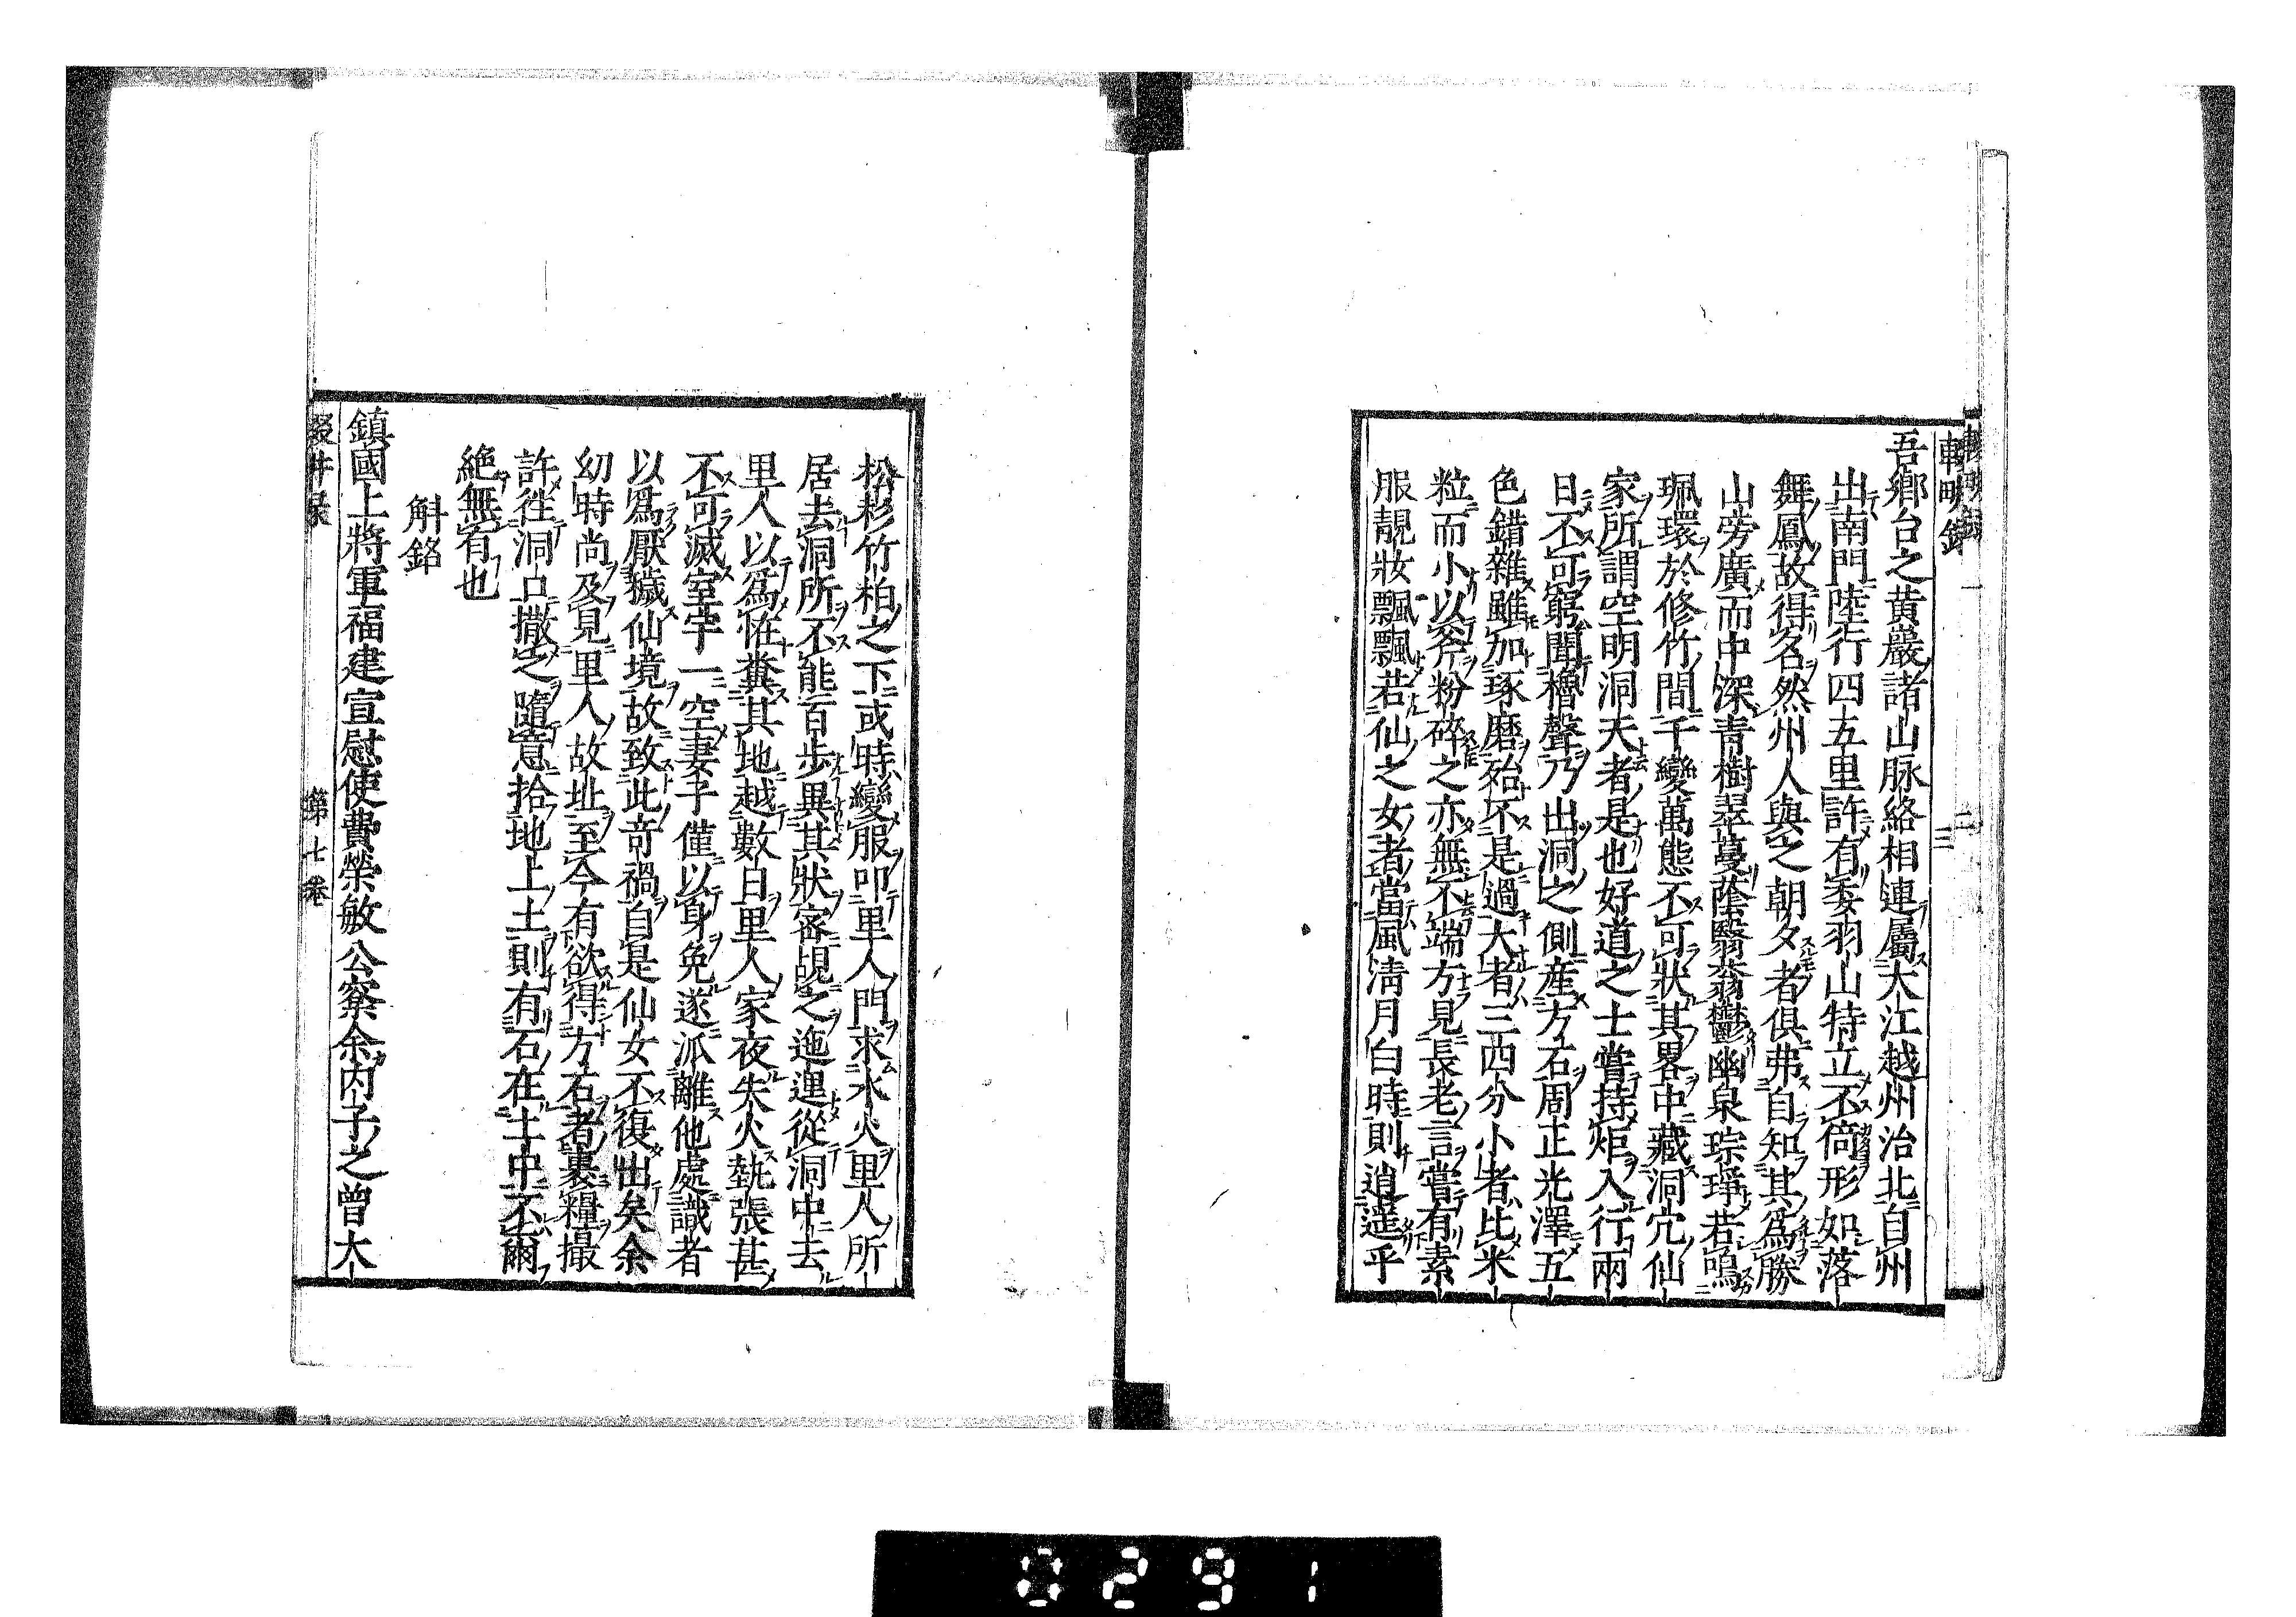 吾鄉台之黄巖諸山脉絡相連屬大江越州治北自州
出南門陸行四五里許有委羽山特立不倚形如落
舞鳳故得名然州人與之朝夕者俱弗自知其爲勝
山旁廣而中深青樹翠蔓蔭翳蓊鬱幽泉琮琤若鳴
珮環於修竹間千變萬態不可狀其畧中藏洞穴仙
家所謂空明洞天者是也好道之士嘗持炬入行兩
日不可窮聞櫓聲乃出洞之側產方石周正光澤五
色錯雜雖加琢磨殆不是過大者三四分小者比米
粒而小以斧粉碎之亦無不端方見長老言嘗有素
服靚妝飄飄若仙之女者當風淸月白時則逍遥乎
松杉竹柏之下或時變服叩里人門求水火里人所
居去洞所不能百步異其狀密覘之迤邐從洞中去
里人以爲恠糞其地越數日里人家夜失火埶張甚
不可滅室宇一空妻子僅以身免遂派離他處識者
以爲厭穢仙境故致此奇禍自是仙女不復出矣余
幼時尚及見里人故址至今有欲得方石者裹糧撮
許徃洞口撒之隨意拾地上土則有石在土中不爾
絶無有也
斛銘
鎮國上將軍福建宣慰使費榮敏公寀余内子之曾大
輟畊录
第七卷